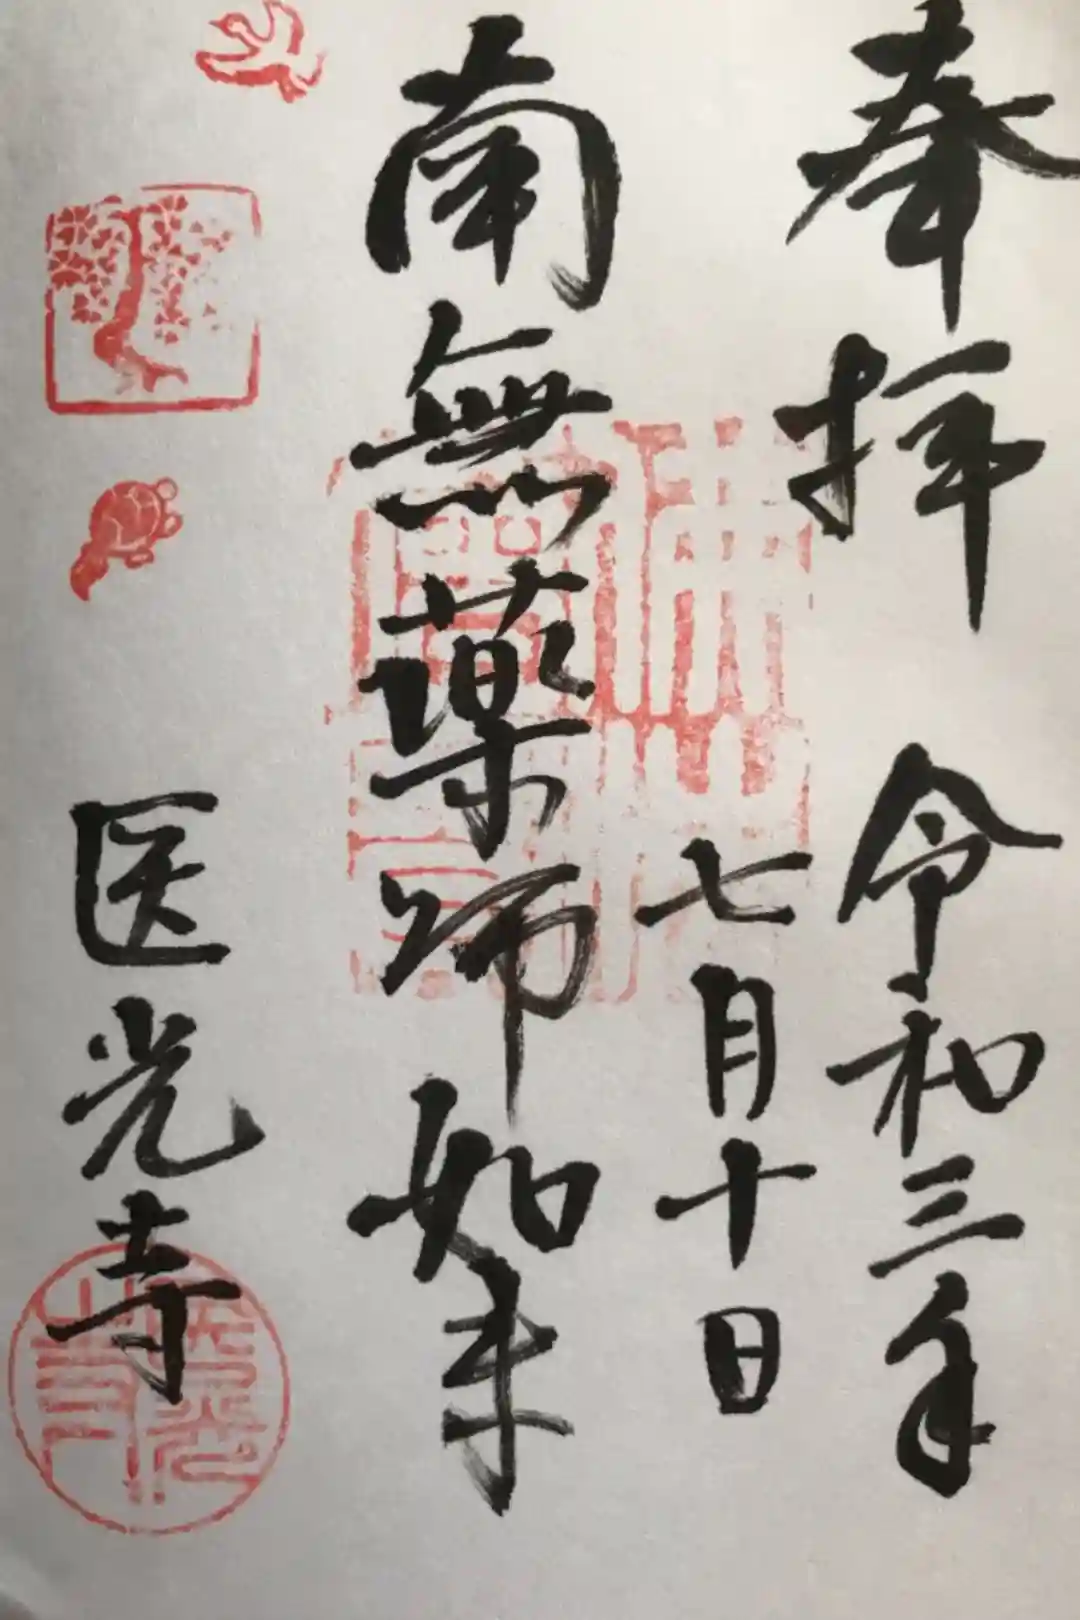 奉拝 令和三年
七月十日
南無薬師如来
医光寺